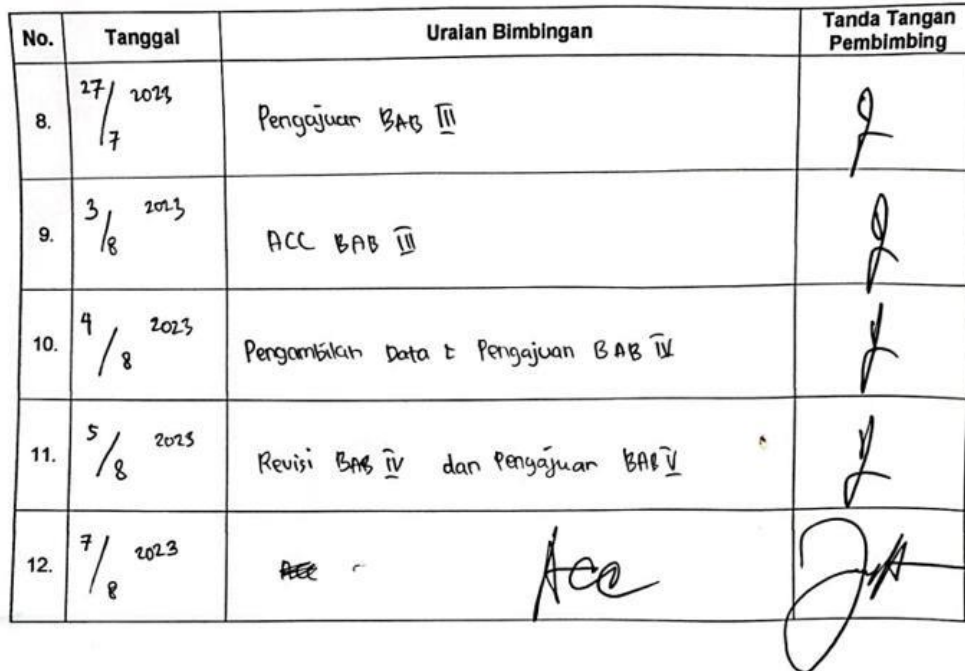 No. Tanggal Uraian Bimbingan Tanda Tangan
Pembimbing
8. 27/7 2023 Pengajuan BAB III
9. 3/8 2023 ACC BAB III
10. 4/8 2023 Pengambilan Data & Pengajuan BAB IV
11. 5/8 2023 Revisi BAB IV dan Pengajuan BAB V
12. 7/8 2023 Acc